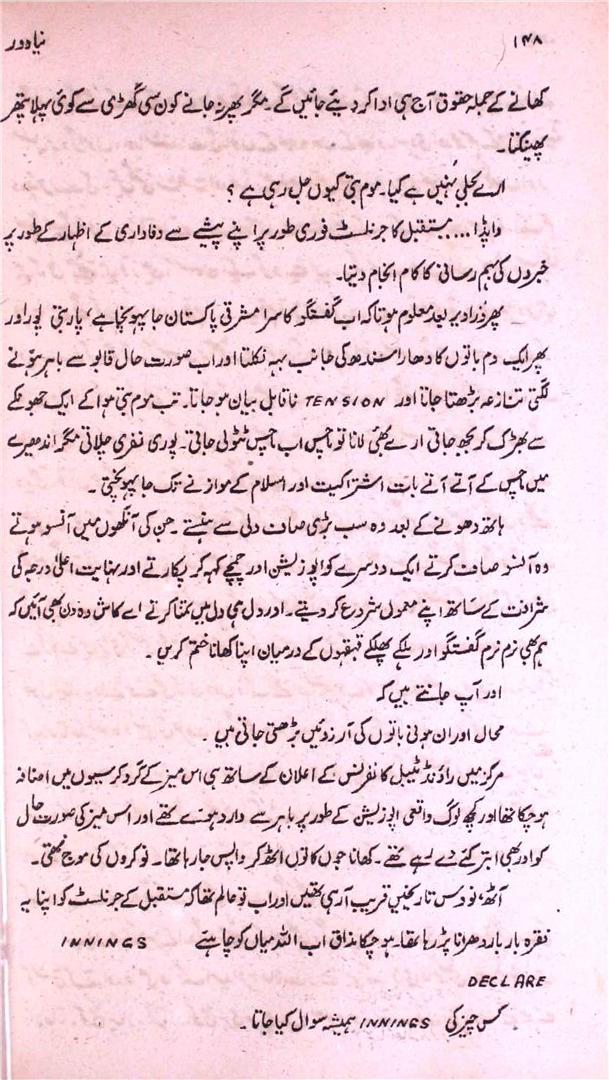 ۱۴۸
نیا دور
کھانے کے جملہ حقوق آج ہی ادا کر دیئے جائیں گے۔ مگر پھر نہ جانے کون سی گھڑی سے کوئی پہلا پتھر
پھینکتا۔
ارے بجلی نہیں ہے کیا۔ موم بتی کیوں جل رہی ہے ؟
واپڈا .... مستقبل کا جرنلسٹ فوری طور پر اپنے پیشے سے وفاداری کے اظہار کے طور پر
خبروں کی بہم رسانی کا کام انجام دیتا۔
پھر ذرا دیر بعد معلوم ہوتا کہ اب گفتگو کا سرا مشرقی پاکستان جا پہونچا ہے، پاربتی پور اور
پھر ایک دم باتوں کا دھارا سندھ کی جانب بہہ نکلتا اور اب صورت حال قابو سے باہر ہونے
لگتی تنازعہ بڑھتا جاتا اور TENSION ناقابل بیان ہو جاتا۔ تب موم بتی ہوا کے ایک جھونکے
سے بھڑک کر بجھ جاتی ارے بھئی لانا تو ماچس اب ماچس ٹٹولی جاتی۔ پوری نفری چلاتی مگر اندھیرے
میں ماچس کے آتے آتے بات اشتراکیت اور اسلام کے موازنے تک جا پہونچتی ۔
ہاتھ دھونے کے بعد وہ سب بڑی صاف دلی سے ہنستے ۔ جن کی آنکھوں میں آنسو ہوتے
وہ آنسو صاف کرتے ایک دوسرے کو اپوزیشن اور چمچے کہہ کر پکارتے اور نہایت اعلیٰ درجہ کی
شرافت کے ساتھ اپنے معمول شروع کر دیتے۔ اور دل ہی دل میں تمنا کرتے اے کاش وہ دن بھی آئیں کہ
ہم بھی نرم نرم گفتگو اور ہلکے پھلکے قہقہوں کے درمیان اپنا کھانا ختم کریں ۔
اور آپ جانتے ہیں کہ
محال اور ان ہونی باتوں کی آرزوئیں بڑھتی جاتی ہیں ۔
مرکز میں راؤنڈ ٹیبل کانفرنس کے اعلان کے ساتھ ہی اس میز کے گرد کرسیوں میں اضافہ
ہو چکا تھا اور کچھ لوگ واقعی اپوزیشن کے طور پر باہر سے وارد ہوئے تھے اور اس میز کی صورت حال
کو اور بھی ابتر کئے دے رہے تھے۔ کھانا جوں کا توں اٹھ کر واپس جا رہا تھا۔ نوکروں کی موج تھی۔
آٹھ، نو دس تاریخیں قریب آ رہی تھیں اور اب تو عالم تھا کہ مستقبل کے جرنلسٹ کو اپنا یہ
فقرہ بار بار دھرانا پڑ رہا تھا۔ ہو چکا مذاق اب اللہ میاں کو چاہئے INNINGS
DECLARE
کس چیز کی INNINGS ہمیشہ سوال کیا جاتا ۔